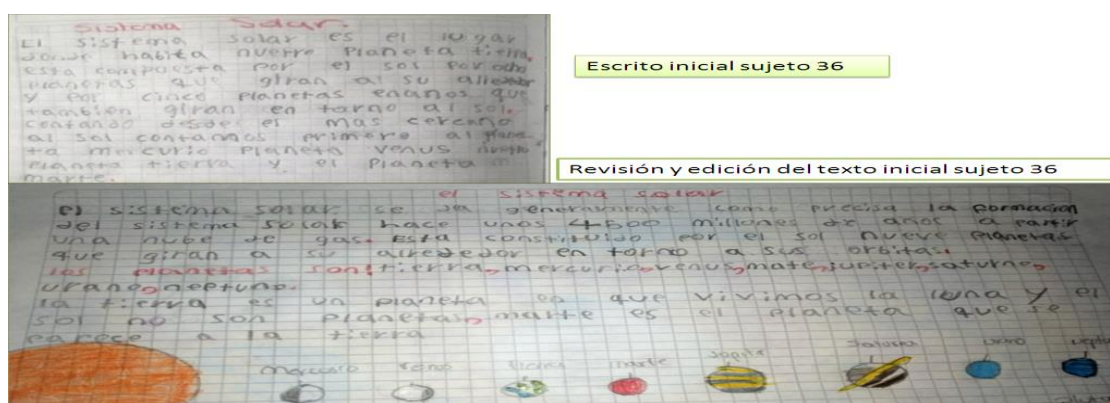 Sistema Solar.
El sistema solar es el lugar
donde habita nuerro Planeta tierra,
esta compuesta por el sol por ocho
planetas que giran al su alrededor
y por cinco planetas enanos que
tambien giran en torno al sol.
contando desde el mas cercano
al sol contamos primero al plane
ta mercurio Planeta venus
Planeta tierra y el Planeta m
marte.
Escrito inicial sujeto 36
Revisión y edición del texto inicial sujeto 36
el sistema solar
el sistema solar se da generarmente como precisa la formacion
del sistema solar hace unos 4500 millones de años a partir
una nube de gas. Esta constituido por el sol nueve planetas
que giran a su alrededor en torno a sus orbitas.
los planetas son: tierra, mercurio, venus, mate, jupiter, saturno,
urano, neptuno.
la tierra es un planeta en que vivimos la luna y el
sol no son planetas, marte es el planeta que se
parece a la tierra
mercurio venus tierra marte Jupite Saturno urano neptu